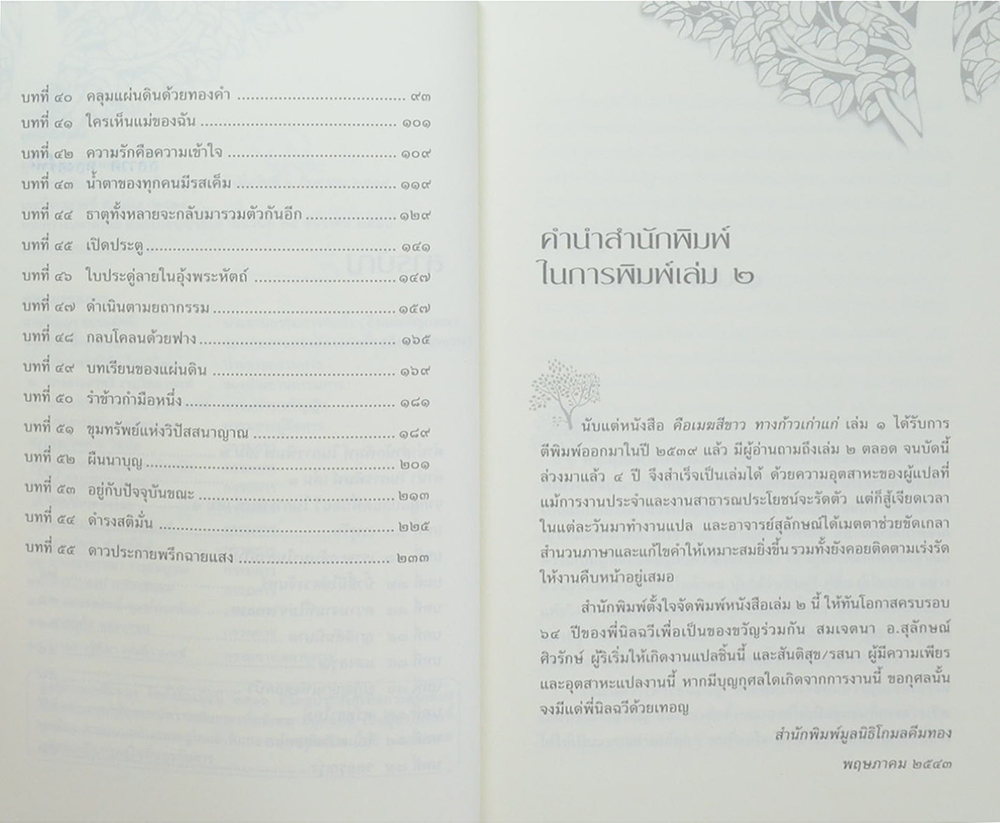 บทที่ ๔๐ คลุมแผ่นดินด้วยทองคำ ........................................ ๙๓
บทที่ ๔๑ ใครเห็นแม่ของฉัน ............................................... ๑๐๑
บทที่ ๔๒ ความรักคือความเข้าใจ ........................................ ๑๐๙
บทที่ ๔๓ น้ำตาของทุกคนมีรสเค็ม ...................................... ๑๑๙
บทที่ ๔๔ ธาตุทั้งหลายจะกลับมารวมตัวกันอีก ...................... ๑๒๙
บทที่ ๔๕ เปิดประตู ............................................................ ๑๔๑
บทที่ ๔๖ ใบประดู่ลายในอุ้งพระหัตถ์ .................................. ๑๔๗
บทที่ ๔๗ ดำเนินตามยถากรรม ............................................ ๑๕๗
บทที่ ๔๘ กลบโคลนด้วยฟาง ............................................... ๑๖๕
บทที่ ๔๙ บทเรียนของแผ่นดิน ............................................. ๑๖๙
บทที่ ๕๐ รำข้าวกำมือหนึ่ง .................................................. ๑๘๑
บทที่ ๕๑ ขุมทรัพย์แห่งวิปัสสนาญาณ .................................. ๑๘๙
บทที่ ๕๒ ผืนนาบุญ ............................................................ ๒๐๑
บทที่ ๕๓ อยู่กับปัจจุบันขณะ ................................................ ๒๑๓
บทที่ ๕๔ ดำรงสติมั่น .......................................................... ๒๒๕
บทที่ ๕๕ ดาวประกายพรึกฉายแสง ...................................... ๒๓๓
คำนำสำนักพิมพ์
ในการพิมพ์เล่ม ๒
นับแต่หนังสือ คือเมฆสีขาว ทางก้าวเก่าแก่ เล่ม ๑ ได้รับการ
ตีพิมพ์ออกมาในปี ๒๕๓๙ แล้ว มีผู้อ่านถามถึงเล่ม ๒ ตลอด จนบัดนี้
ล่วงมาแล้ว ๔ ปี จึงสำเร็จเป็นเล่มได้ ด้วยความอุตสาหะของผู้แปลที่
แม้การงานประจำและงานสาธารณประโยชน์จะรัดตัว แต่ก็สู้เจียดเวลา
ในแต่ละวันมาทำงานแปล และอาจารย์สุลักษณ์ได้เมตตาช่วยขัดเกลา
สำนวนภาษาและแก้ไขคำให้เหมาะสมยิ่งขึ้น รวมทั้งยังคอยติดตามเร่งรัด
ให้งานคืบหน้าอยู่เสมอ
สำนักพิมพ์ตั้งใจจัดพิมพ์หนังสือเล่ม ๒ นี้ ให้ทันโอกาสครบรอบ
๖๔ ปีของพี่นิลฉวีเพื่อเป็นของขวัญร่วมกัน สมเจตนา อ.สุลักษณ์
ศิวรักษ์ ผู้ริเริ่มให้เกิดงานแปลชิ้นนี้ และสันติสุข/รสนา ผู้มีความเพียร
และอุตสาหะแปลงานนี้ หากมีบุญกุศลใดเกิดจากการงานนี้ ขอกุศลนั้น
จงมีแด่พี่นิลฉวีด้วยเทอญ
สำนักพิมพ์มูลนิธิโกมลคีมทอง
พฤษภาคม ๒๕๔๓